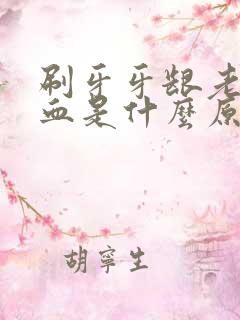 刷牙牙龈老
血是什麼原
胡寧生